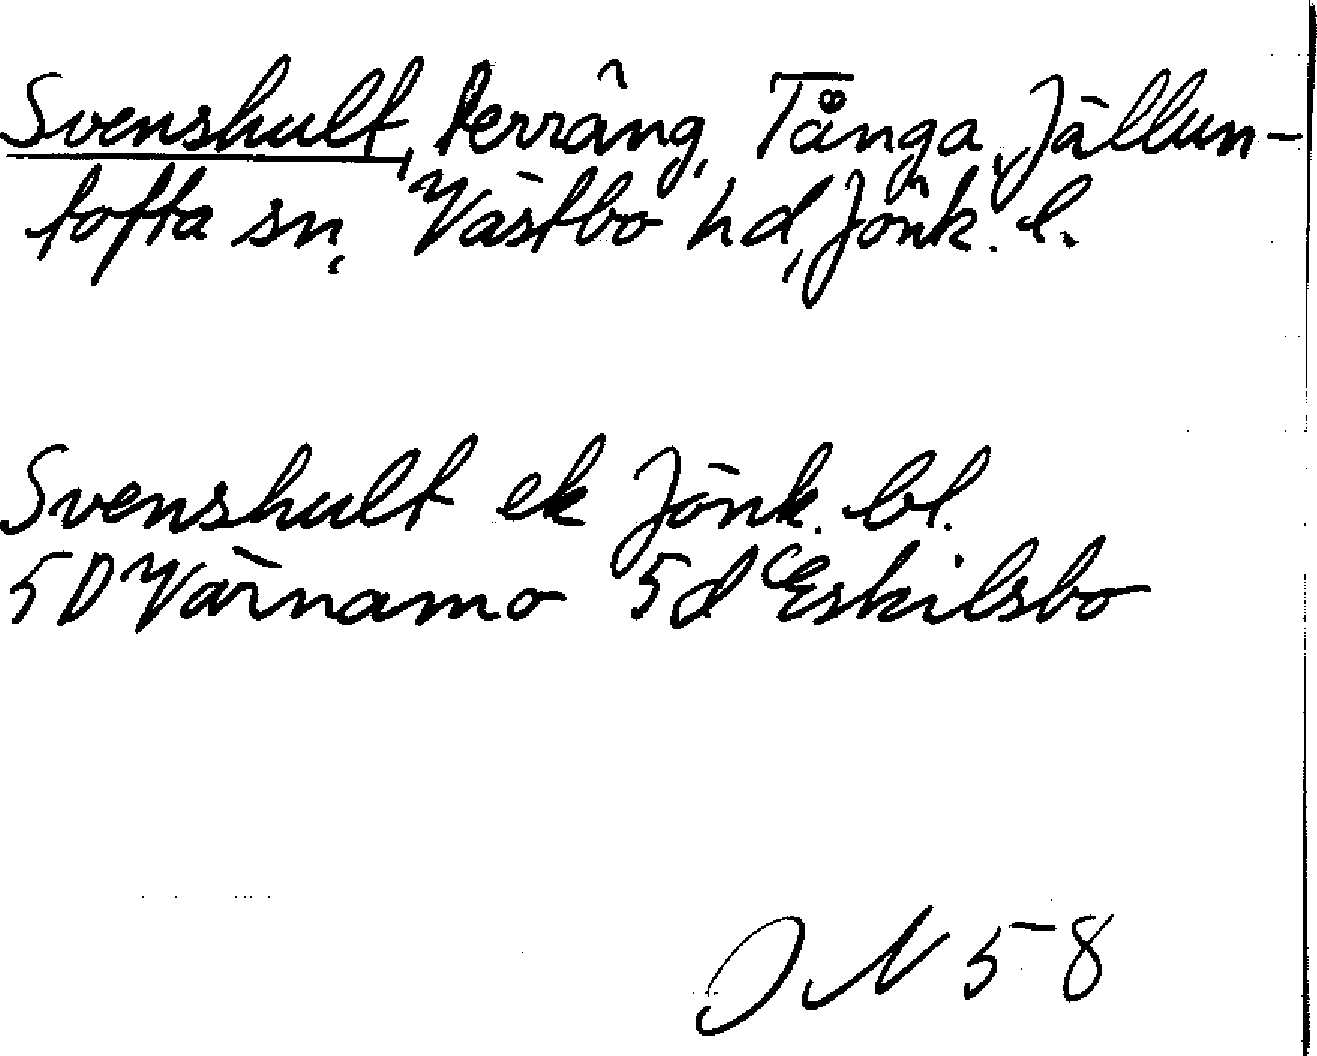 Svenshult, Perräng, Tånga, Jällun-
tofta sn, Västbo hd, Jönk. l.
Svenshult ek Jönk. bl.
5D Värnamo 5d Eskilsbo
JN 58